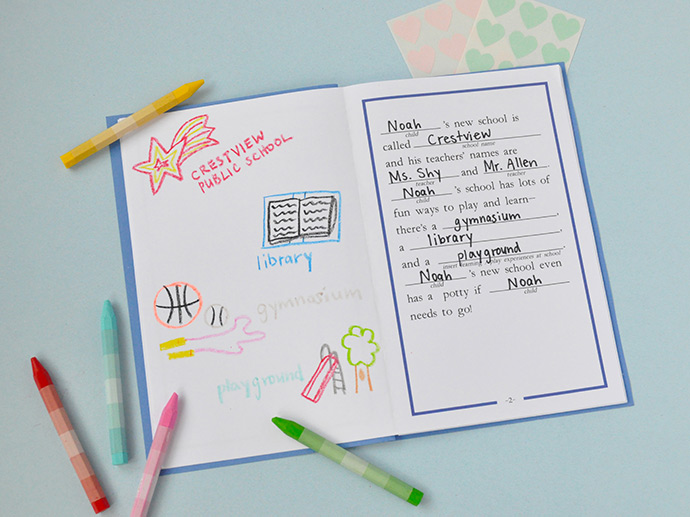 CRESTVIEW
PUBLIC SCHOOL
library
gymnasium
playground
Noah 's new school is
child
called Crestview
school name
and his teachers' names are
Ms. Shy and Mr. Allen.
teacher teacher
Noah 's school has lots of
child
fun ways to play and learn–
there's a gymnasium,
a library,
and a playground.
insert learning/play experiences at school
Noah 's new school even
child
has a potty if Noah
child
needs to go!
-2-